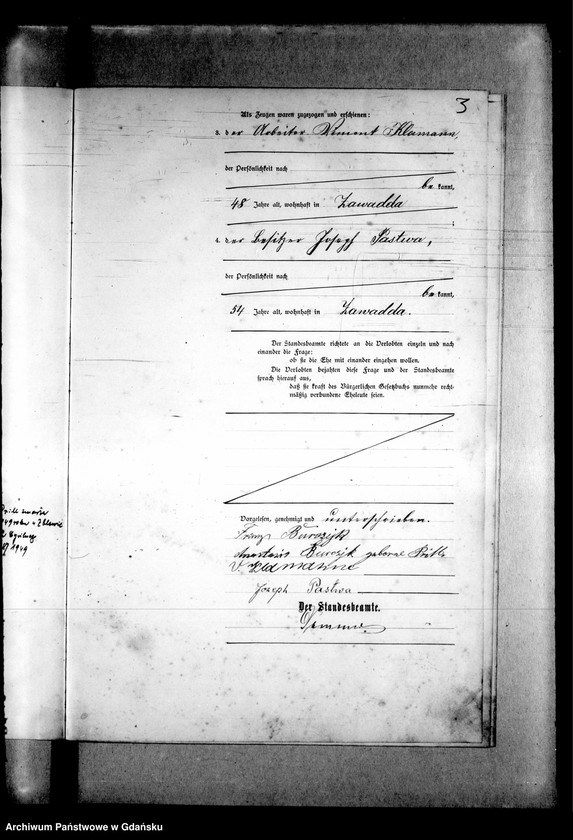 3
Als Zeugen waren zugezogen und erschienen:
3. der Arbeiter Vincent Klamann,
der Persönlichkeit nach
be kannt,
48 Jahre alt, wohnhaft in Zawadda
;
4. der Besitzer Joseph Pastwa,
der Persönlichkeit nach
be kannt,
54 Jahre alt, wohnhaft in Zawadda.
Der Standesbeamte richtete an die Verlobten einzeln und nach
einander die Frage:
ob sie die Ehe mit einander eingehen wollen.
Die Verlobten bejahten diese Frage und der Standesbeamte
sprach hierauf aus,
daß sie kraft des Bürgerlichen Gesetzbuchs nunmehr recht-
mäßig verbundene Eheleute seien.
Vorgelesen, genehmigt und unterschrieben.
Franz
Anastasia geborne
V. Klamann
Joseph Pastwa
Der Standesbeamte.
1949
Archiwum Państwowe w Gdańsku